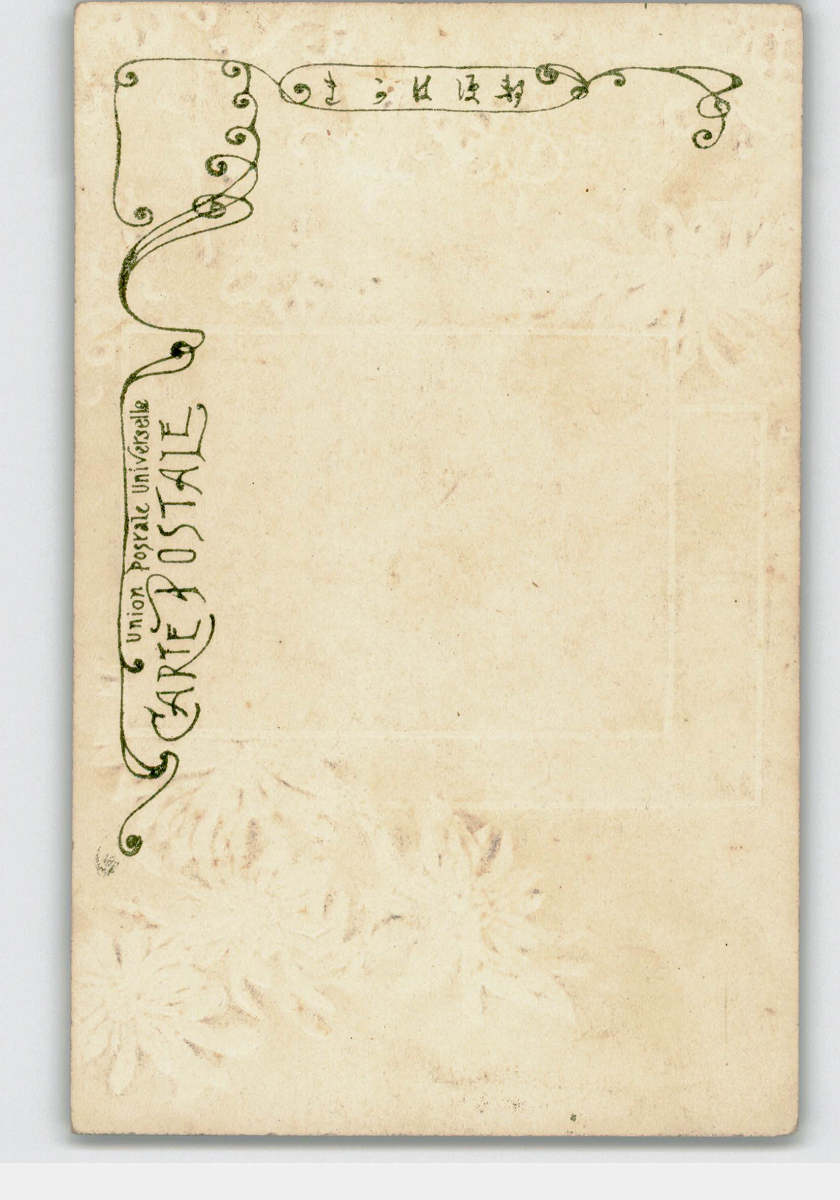 郵便はかき
Union Postale Universelle
CARTE POSTALE